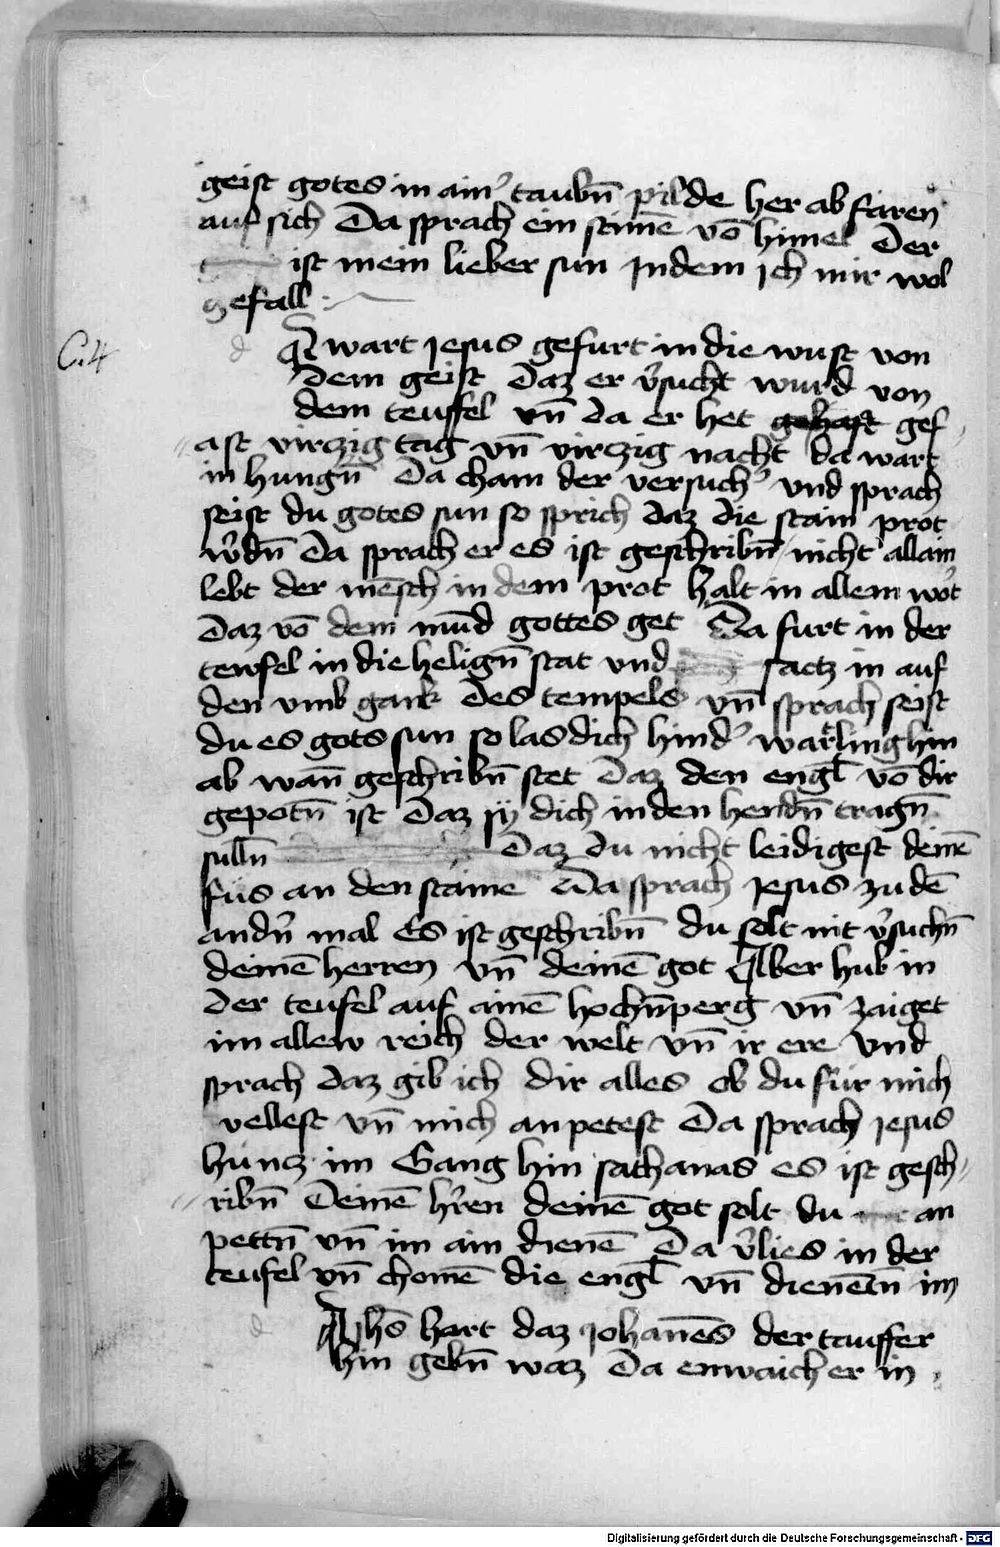 geist gotes in ain' taubn̄ pilde her ab faren
auf sich Da sprach ein stim̄e vō himel Der
ist mein lieber sun Indem ich mir wol
gefall
d
C. 4
wart Jesus gefurt in die wust von
dem geist Daz er v̄sucht wurd von
dem teuffel vn̄ da er het gef
ast virczig tag vn̄ virczig nacht da wart
in hungn̄ Da cham der versuch' vnd sprach
seist du gotes sun so sprich daz die stain prot
w̄dn̄ Da sprach er es ist geschribn̄ nicht allain
lebt der mēsch in dem prot halt in allem wo't
Daz vō dem mūd gottes get Da furt in der
tewfel in die heilign̄ stat vnd satz in auf
den vmb gank des tempels vn̄ sprach seist
du es gots sun so las dich hind' wartling hin
ab wan̄ geschribn̄ stet Daz den engl̄ vō dir
gepotn̄ ist Daz sy dich in den hendn̄ tragn̄
sulln̄ Daz du nicht leidigest deinē
fus an den staine Da sprach Jesus zu dē
andn̄ mal Es ist geschribn̄ du solt nit v̄suchn̄
deinē herren vn̄ deinē got Aber hub in
der teufel auf ainē hochn̄ perg vn̄ zaiget
im allew reich der welt vn̄ ir ere vnd
sprach daz gib ich dir alles ob du für mich
vellest vn̄ mich an petest Da sprach Jesus
hüncz im Gang hin sathanas es ist gesch
ribn̄ Deinē h̄ren deinē got solt du an
pettn̄ vn̄ im ain dienē Da v̄lies in der
teufel vn̄ chomē die engl̄ vn̄ dienētn̄ im
d
Ihs̄ hart daz Johanēs der tauffer
hin gebn̄ waz Da entwaich er in
Digitalisierung gefördert durch die Deutsche Forschungsgemeinschaft - DFG